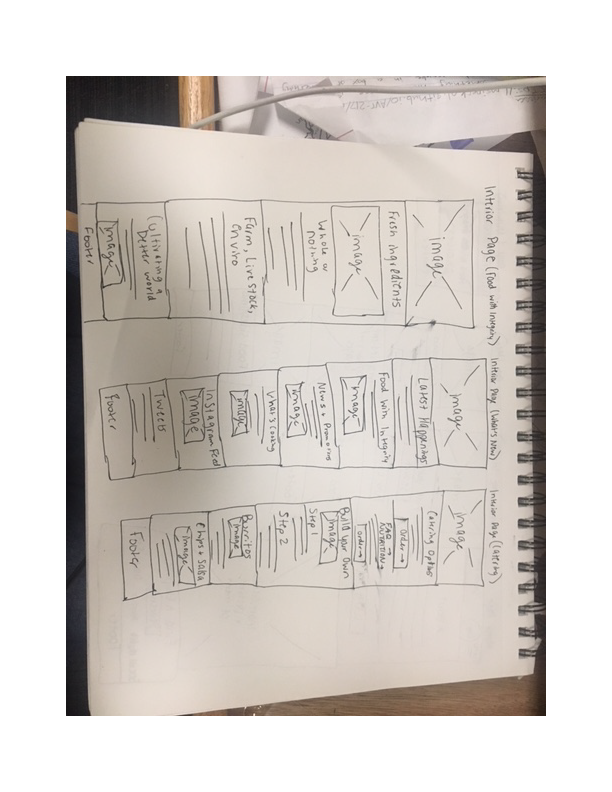 Interior Page (Food with Integrity)
image
Fresh ingredients
image
Whole or
nothing
Farm, Livestock,
enviro
Cultivating a
Better world
image
Footer
Interior Page (What's New)
image
Latest Happenings
Food with Integrity
image
News + Promotions
image
What's Cooking
image
Instagram Feed
image
Tweets
Footer
Interior Page (Catering)
image
Catering Options
order→
FAQ →
NUTRITION→
order→
Build Your Own
image
Step 1
Step 2
Burritos
image
Chips + Salsa
image
Footer